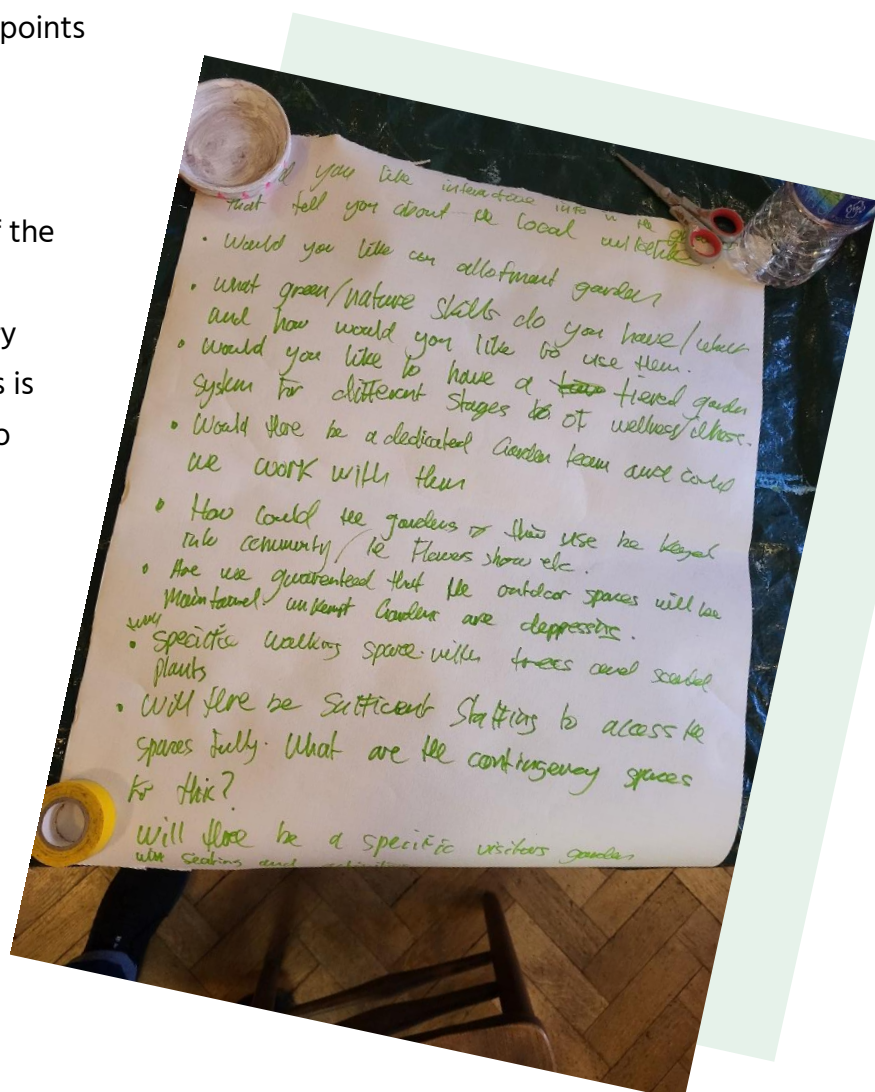 points
f the
y
s is
o
you like interactive info in the
that tell you about the local wildlife
• Would you like an allotment garden
• what green/nature skills do you have/want
and how would you like to use them.
• would you like to have a tiered garden
system for different stages of wellness/illness.
• Would there be a dedicated Garden team and could
we work with them
• How could the gardens & their use be keyed
into community / ie Flowers show etc.
• Are we guarenteed that the outdoor spaces will be
Maintained. unkempt Gardens are depressing.
• Specific walking space with trees and scented
plants
• Will there be sufficient Staffing to access the
spaces fully. What are the contingency spaces
for this?
Will there be a specific visitors garden
with seating and